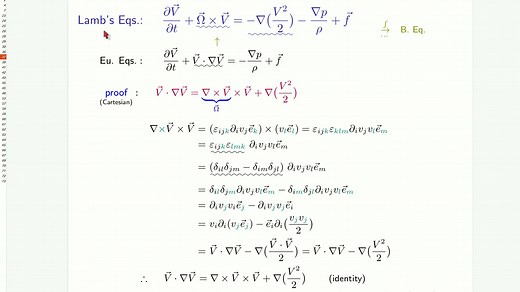 Lamb's Eqs.: ∂V⃗/∂t + Ω⃗ × V⃗ = −∇(V²/2) − ∇p/ρ + f⃗ ∫→ ... B. Eq.
↑
Eu. Eqs.: ∂V⃗/∂t + V⃗ · ∇V⃗ = −∇p/ρ + f⃗
proof : V⃗ · ∇V⃗ = ∇ × V⃗ × V⃗ + ∇(V²/2)
(Cartesian) Ω⃗
∇ × V⃗ × V⃗ = (ε_ijk ∂_i v_j e⃗_k) × (v_l e⃗_l) = ε_ijk ε_klm ∂_i v_j v_l e⃗_m
= ε_ijk ε_lmk ∂_i v_j v_l e⃗_m
= (δ_il δ_jm − δ_im δ_jl) ∂_i v_j v_l e⃗_m
= δ_il δ_jm ∂_i v_j v_l e⃗_m − δ_im δ_jl ∂_i v_j v_l e⃗_m
= ∂_i v_j v_i e⃗_j − ∂_i v_j v_j e⃗_i
= v_i ∂_i (v_j e⃗_j) − e⃗_i ∂_i (v_j v_j/2)
= V⃗ · ∇V⃗ − ∇(V⃗ · V⃗/2) = V⃗ · ∇V⃗ − ∇(V²/2)
∴ V⃗ · ∇V⃗ = ∇ × V⃗ × V⃗ + ∇(V²/2) (identity)